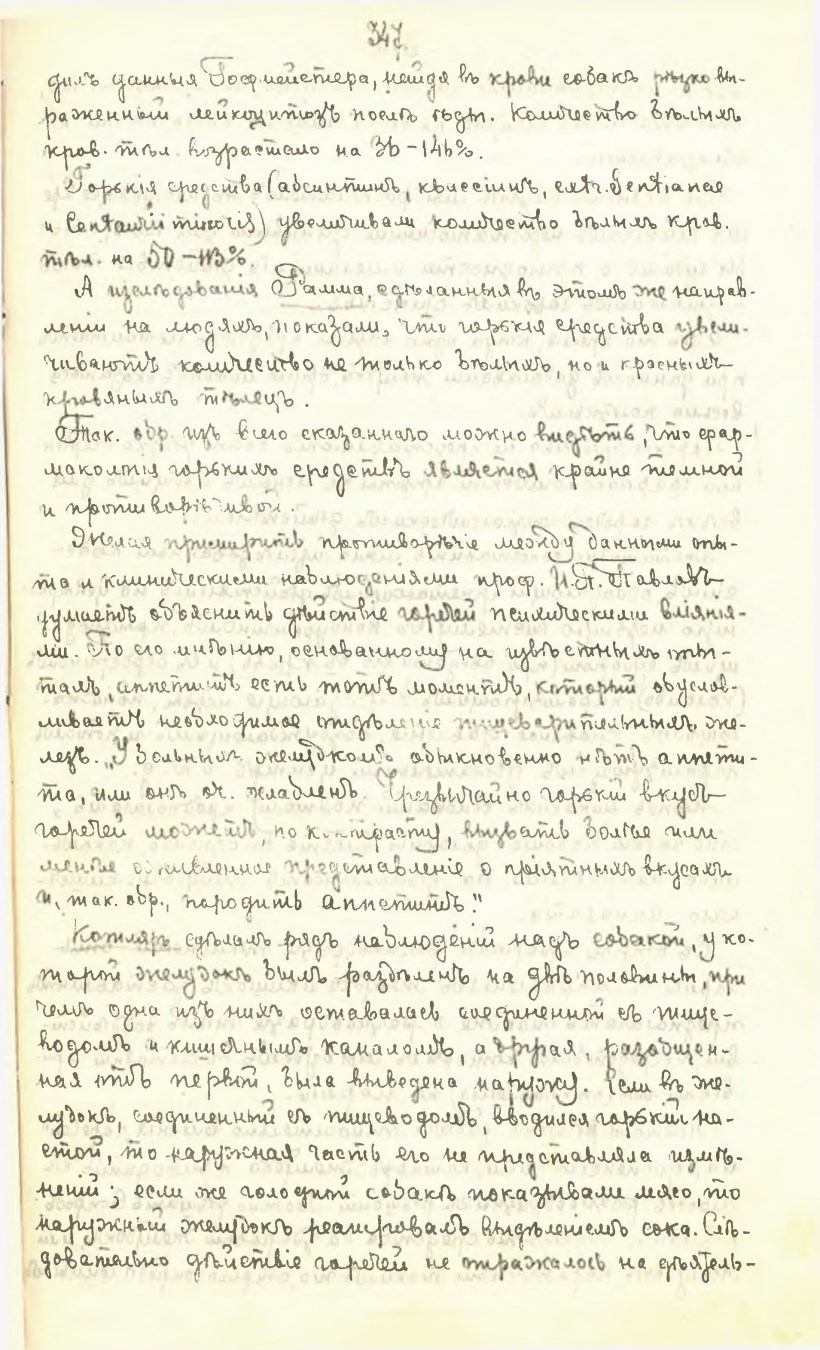 347.
дилъ данныя Гофмейстера, найдя въ крови собакъ рѣзко вы-
раженный лейкоцитозъ послѣ ѣды. Количество бѣлыхъ
кров. тѣл. возрастало на 36-146%.
Горькія средства (абсинтинъ, квассіинъ, extr. Gentianae
и Centaurii minoris) увеличивали количество бѣлыхъ кров.
тѣл. на 50-113%.
А изслѣдованія Рамма, сдѣланныя въ этомъ же направ-
леніи на людяхъ, показали, что горькія средства увели-
чиваютъ количество не только бѣлыхъ, но и красныхъ
кровяныхъ тѣлецъ.
Так. обр. изъ всего сказаннаго можно видѣть, что фар-
макологія горькихъ средствъ является крайне темной
и противорѣчивой.
Желая примирить противорѣчіе между данными опы-
та и клиническими наблюденіями проф. И.П. Павловъ
думаетъ объяснить дѣйствіе горечей психическими вліянія-
ми. По его мнѣнію, основанному на извѣстныхъ опы-
тахъ, аппетитъ есть тотъ моментъ, который обуслов-
ливаетъ необходимое отдѣленіе пищеварительныхъ же-
лезъ. „У больныхъ желудкомъ обыкновенно нѣтъ аппети-
та, или онъ оч. слабъ. Чрезвычайно горькій вкусъ
горечей можетъ, по контрасту, вызвать болѣе или
менѣе оживленное представленіе о пріятныхъ вкусахъ
и, так. обр., породить аппетитъ."
Котляръ сдѣлалъ рядъ наблюденій надъ собакой, у ко-
торой желудокъ былъ раздѣленъ на двѣ половины, при
чемъ одна изъ нихъ оставалась соединенной съ пище-
водомъ и кишечнымъ каналомъ, а другая, разобщен-
ная отъ первой, была выведена наружу. Если въ же-
лудокъ, соединенный съ пищеводомъ, вводился горькій на-
стой, то наружная часть его не представляла измѣ-
неній; если же голодной собакѣ показывали мясо, то
наружный желудокъ реагировалъ выдѣленіемъ сока. Слѣ-
довательно дѣйствіе горечей не отражалось на дѣятель-